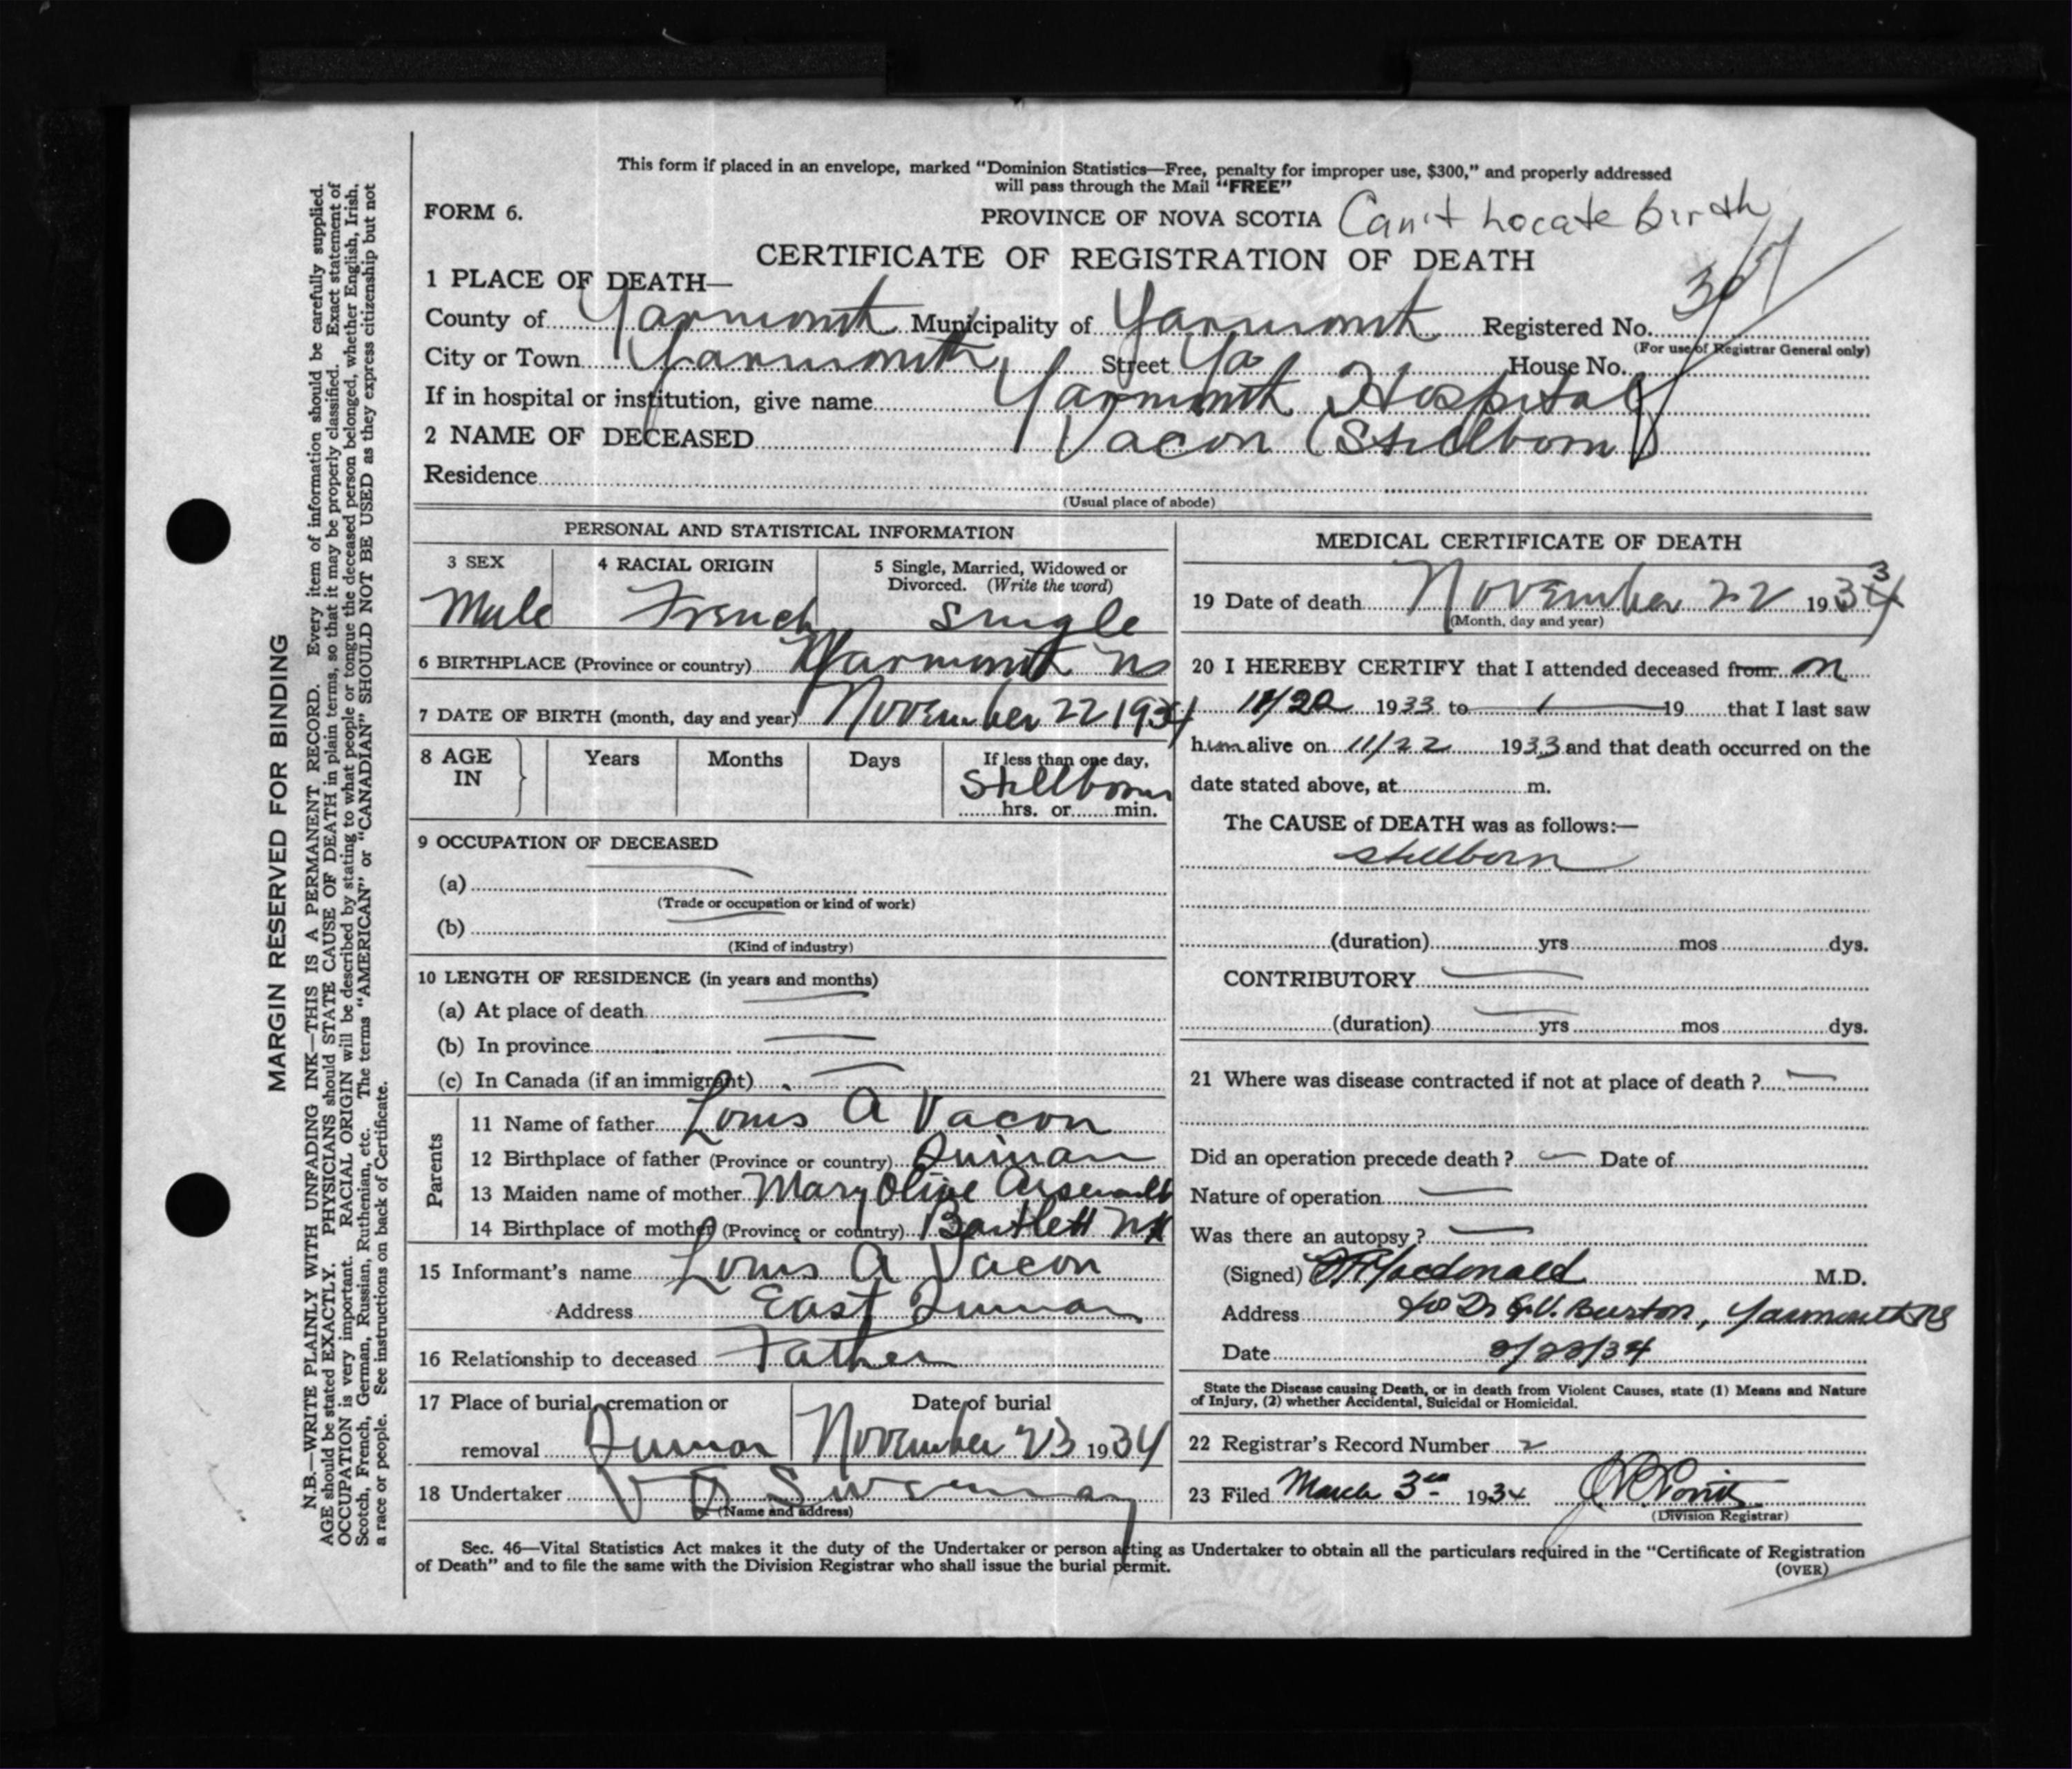 This form if placed in an envelope, marked "Dominion Statistics—Free, penalty for improper use, $300," and properly addressed
will pass through the Mail "FREE"
FORM 6.
PROVINCE OF NOVA SCOTIA Can't Locate birth
CERTIFICATE OF REGISTRATION OF DEATH
1 PLACE OF DEATH—
County of Yarmouth Municipality of Yarmouth Registered No.
(For use of Registrar General only)
City or Town Yarmouth Street Yar House No.
If in hospital or institution, give name Yarmouth Hospital
2 NAME OF DECEASED Vacon (Stillborn)
Residence
(Usual place of abode)
PERSONAL AND STATISTICAL INFORMATION
3 SEX 4 RACIAL ORIGIN 5 Single, Married, Widowed or
Divorced. (Write the word)
Male French Single
6 BIRTHPLACE (Province or country) Yarmouth NS
7 DATE OF BIRTH (month, day and year) November 22 1934
8 AGE IN Years Months Days If less than one day,
Stillborn
hrs. or min.
9 OCCUPATION OF DECEASED
(a)
(Trade or occupation or kind of work)
(b)
(Kind of industry)
10 LENGTH OF RESIDENCE (in years and months)
(a) At place of death
(b) In province
(c) In Canada (if an immigrant)
Parents
11 Name of father Louis A Vacon
12 Birthplace of father (Province or country) Quinan
13 Maiden name of mother Mary Olive Arsenault
14 Birthplace of mother (Province or country) Bartlett NS
15 Informant's name Louis A Vacon
Address East Quinan
16 Relationship to deceased Father
17 Place of burial, cremation or Date of burial
removal Quinan November 23 1934
18 Undertaker V Sweeney
(Name and address)
MEDICAL CERTIFICATE OF DEATH
19 Date of death November 22 1934 3
(Month, day and year)
20 I HEREBY CERTIFY that I attended deceased from on
11/22 1933 to 19 that I last saw
him alive on 11/22 1933 and that death occurred on the
date stated above, at m.
The CAUSE of DEATH was as follows:—
stillborn
(duration) yrs mos dys.
CONTRIBUTORY
(duration) yrs mos dys.
21 Where was disease contracted if not at place of death ?
Did an operation precede death ? Date of
Nature of operation
Was there an autopsy ?
(Signed) Macdonald M.D.
Address Dr G.V. Burton, Yarmouth NS
Date 2/22/34
State the Disease causing Death, or in death from Violent Causes, state (1) Means and Nature
of Injury, (2) whether Accidental, Suicidal or Homicidal.
22 Registrar's Record Number 2
23 Filed March 3rd 1934
(Division Registrar)
Sec. 46—Vital Statistics Act makes it the duty of the Undertaker or person acting as Undertaker to obtain all the particulars required in the "Certificate of Registration
of Death" and to file the same with the Division Registrar who shall issue the burial permit.
(OVER)
MARGIN RESERVED FOR BINDING
N.B.—WRITE PLAINLY WITH UNFADING INK—THIS IS A PERMANENT RECORD. Every item of information should be carefully supplied.
AGE should be stated EXACTLY. PHYSICIANS should STATE CAUSE OF DEATH in plain terms, so that it may be properly classified. Exact statement of
OCCUPATION is very important. RACIAL ORIGIN will be described by stating to what people or tongue the deceased person belonged, whether English, Irish,
Scotch, French, German, Russian, Ruthenian, etc. The terms "AMERICAN" or "CANADIAN" SHOULD NOT BE USED as they express citizenship but not
a race or people. See instructions on back of Certificate.